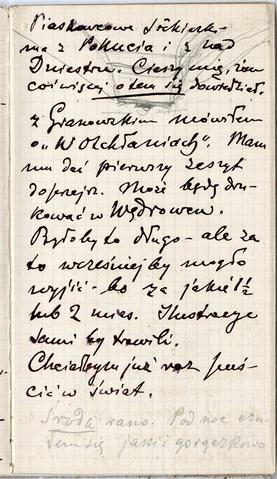 Piaskowcowe Siekierk-
ma z Pokucia i z nad
Dniestru. Cieszy mię, żem
coś więcej o tem się dowiedział.
Z Granowskim mówiłem
o „W Otchłaniach". Mam
mu dać pierwszy zeszyt
do przejrz. Może będą dru-
kować w Wędrowcu.
Byłoby to długo - ale za
to wcześniej by mogło
wyjść - bo za jakie 1½
lub 2 mies. Ilustracje
sami by trawili.
Chciałbym już raz puś-
cić w świat.
Środa rano. Pod noc czu-
łem się jakiś gorączkowo